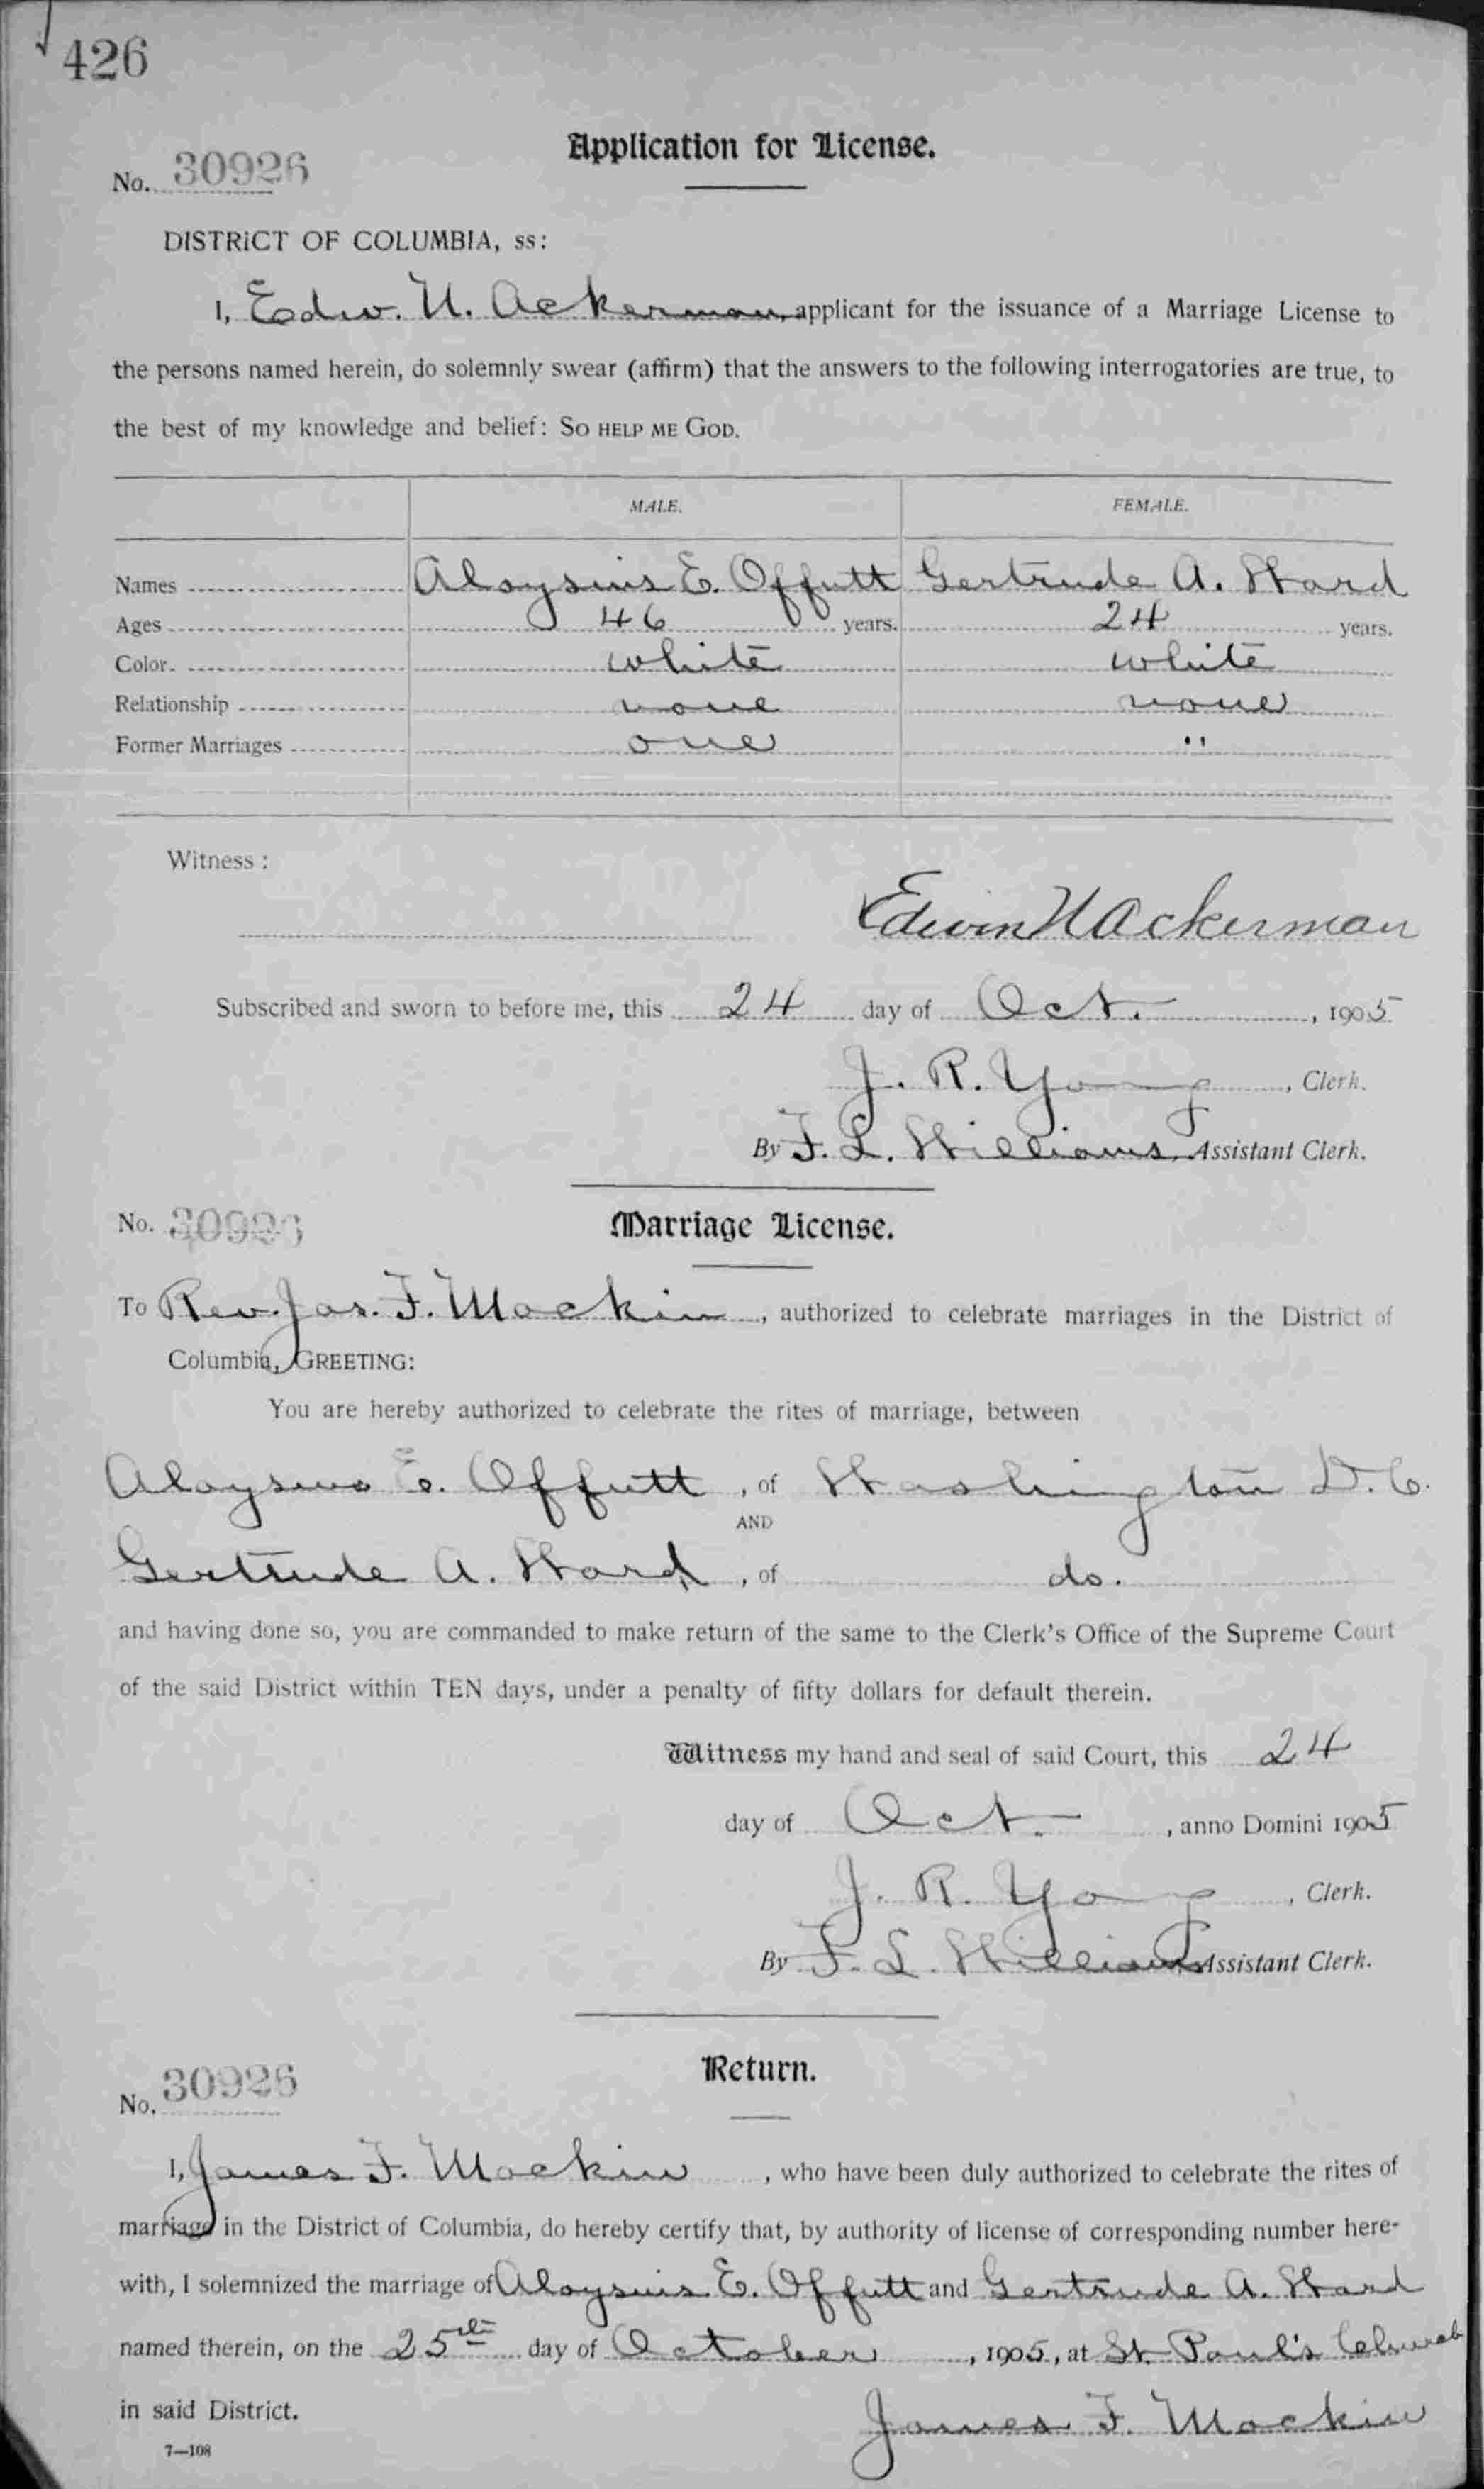 426
Application for License.
No. 30926
DISTRICT OF COLUMBIA, ss:
I, Edw. H. Ackerman, applicant for the issuance of a Marriage License to
the persons named herein, do solemnly swear (affirm) that the answers to the following interrogatories are true, to
the best of my knowledge and belief: So help me God.
MALE. FEMALE.
Names Aloysius E. Offutt Gertrude A. Ward
Ages 46 years. 24 years.
Color. white white
Relationship none none
Former Marriages one "
Witness :
Edwin H Ackerman
Subscribed and sworn to before me, this 24 day of Oct. , 1905
J. R. Young , Clerk.
By F. L. Williams, Assistant Clerk.
No. 30926 Marriage License.
To Rev. Jas. F. Mackin , authorized to celebrate marriages in the District of
Columbia, GREETING:
You are hereby authorized to celebrate the rites of marriage, between
Aloysius E. Offutt , of Washington D.C.
AND
Gertrude A. Ward , of do.
and having done so, you are commanded to make return of the same to the Clerk's Office of the Supreme Court
of the said District within TEN days, under a penalty of fifty dollars for default therein.
Witness my hand and seal of said Court, this 24
day of Oct. , anno Domini 1905
J. R. Young , Clerk.
By F. L. Williams Assistant Clerk.
Return.
No. 30926
I, James F. Mackin , who have been duly authorized to celebrate the rites of
marriage in the District of Columbia, do hereby certify that, by authority of license of corresponding number here-
with, I solemnized the marriage of Aloysius E. Offutt and Gertrude A. Ward
named therein, on the 25th day of October , 1905, at St. Paul's Church
in said District.
James F. Mackin
7—108